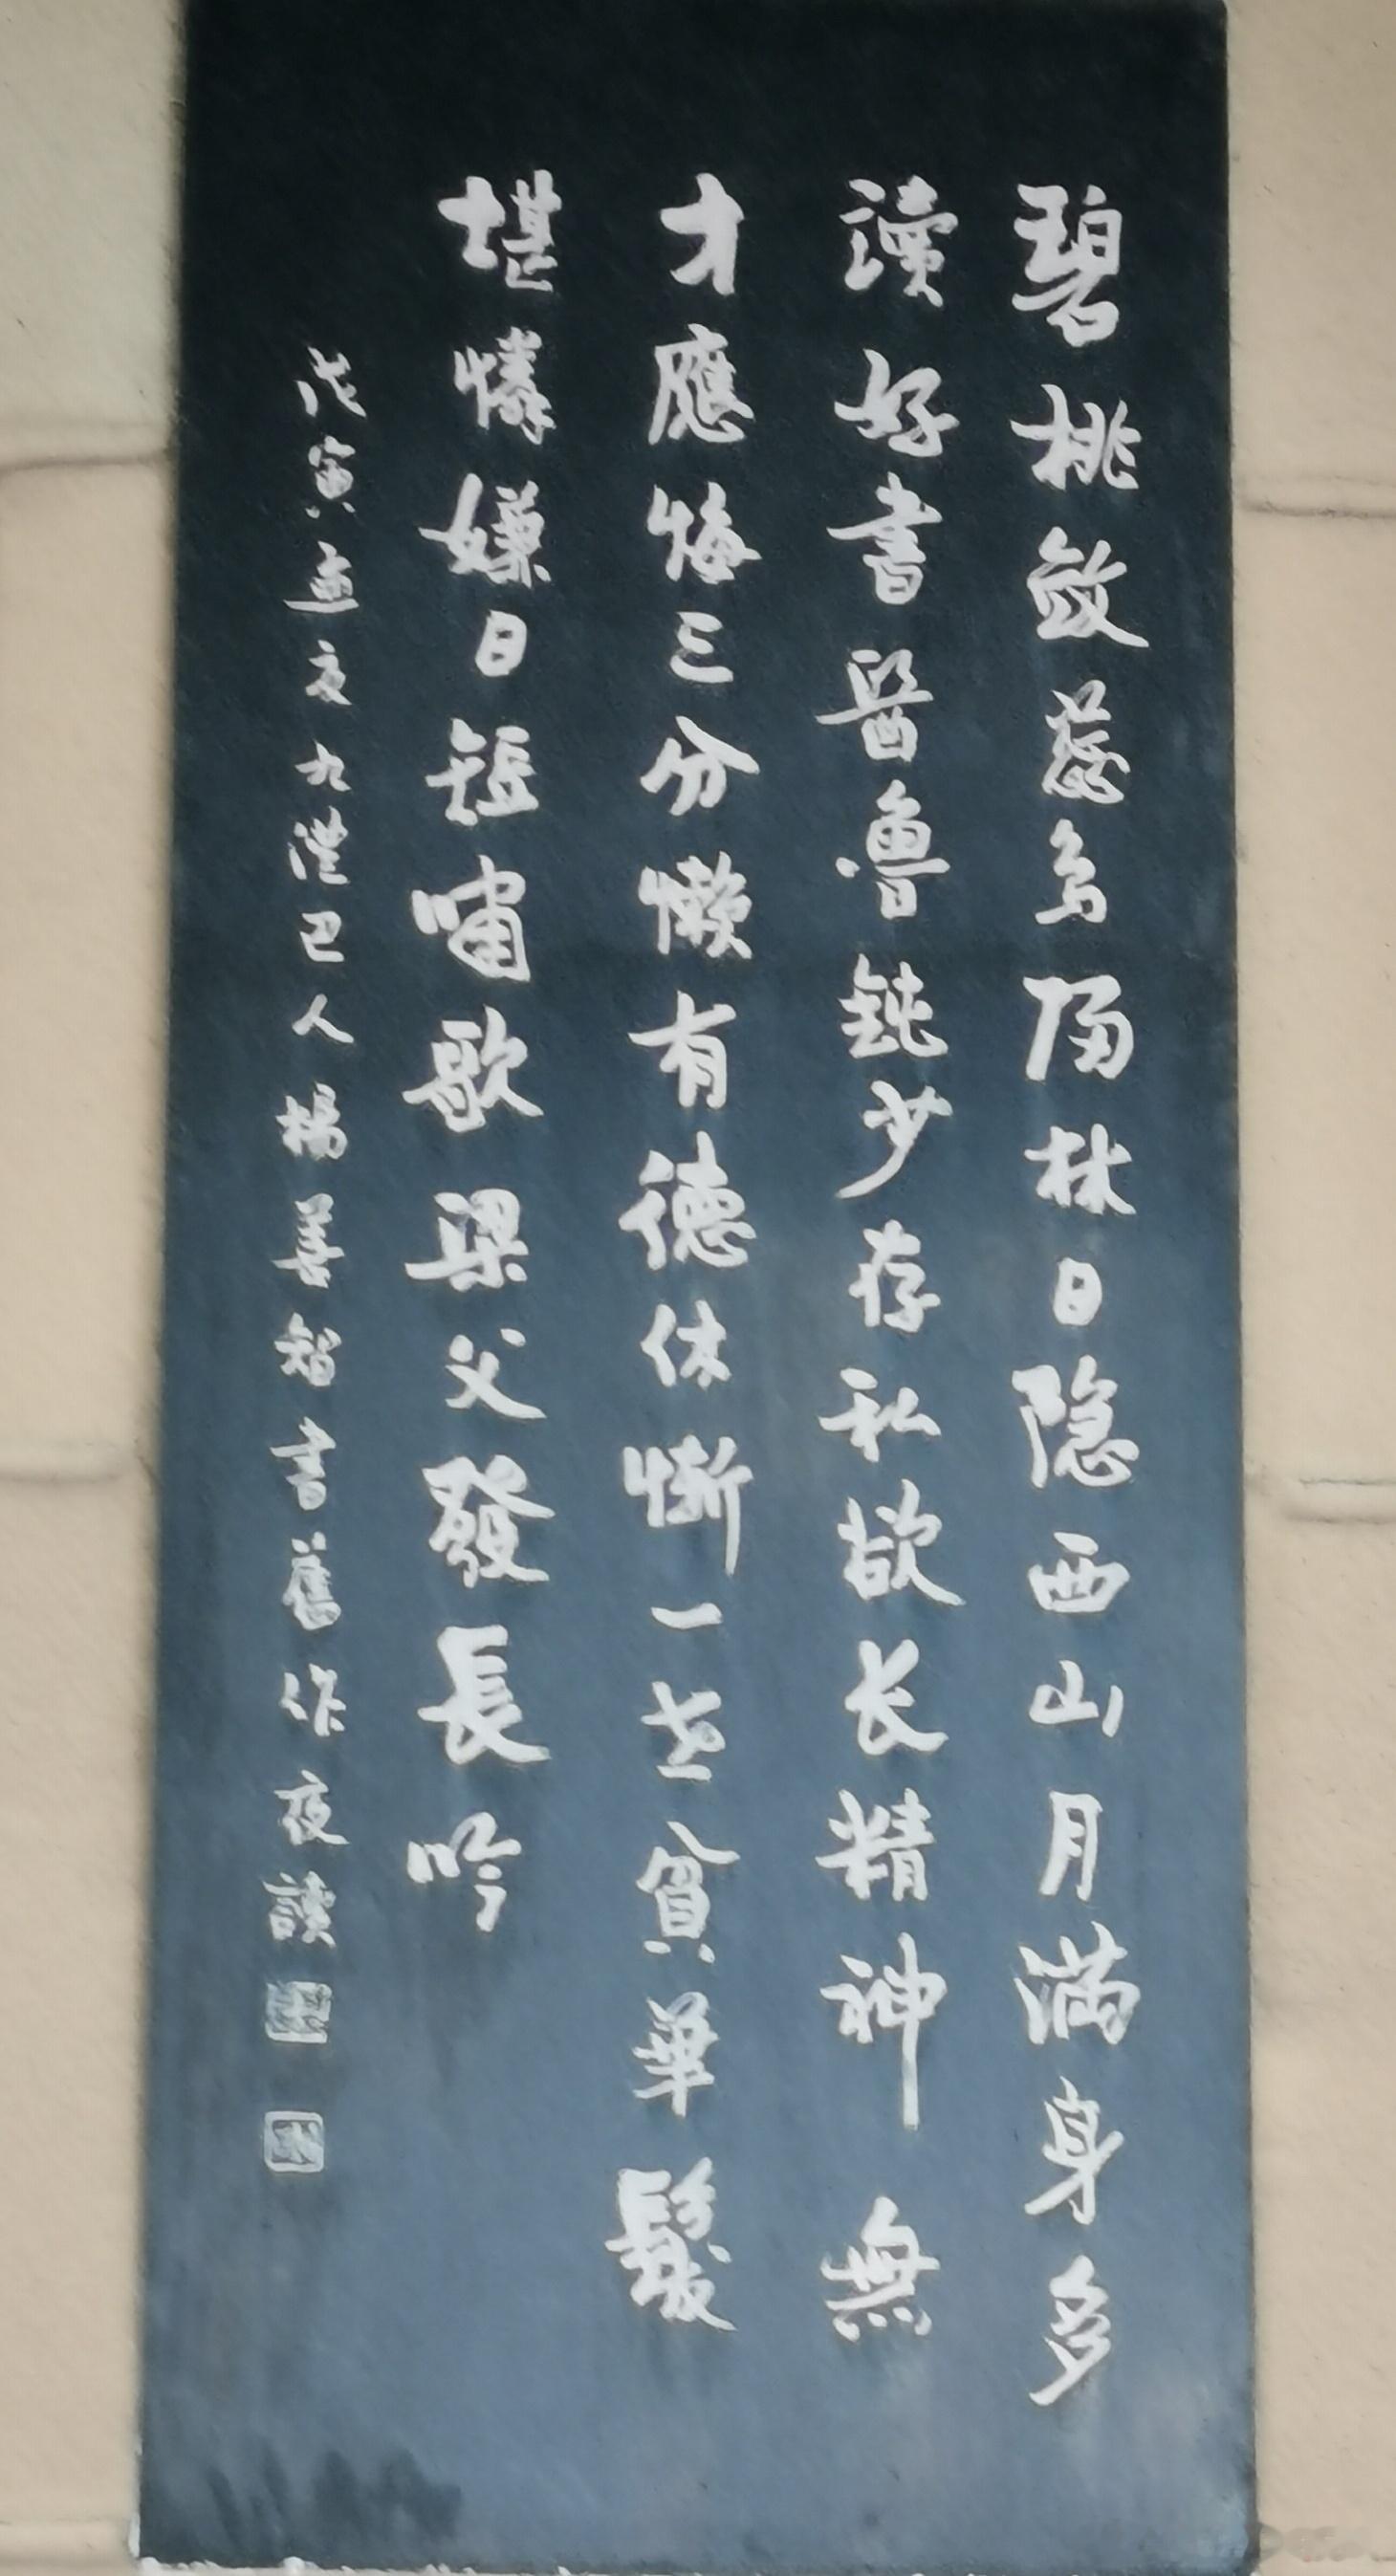 碧桃斂蕊鳥隔林日隐西山月滿身多
讀好書醫魯鈍少存私欲长精神無
才應悔三分懒有德休慚一世貧華髮
堪憐嫌日短嘯歌梁父發長吟
戊寅孟夏九澧巴人楊善智書舊作夜讀